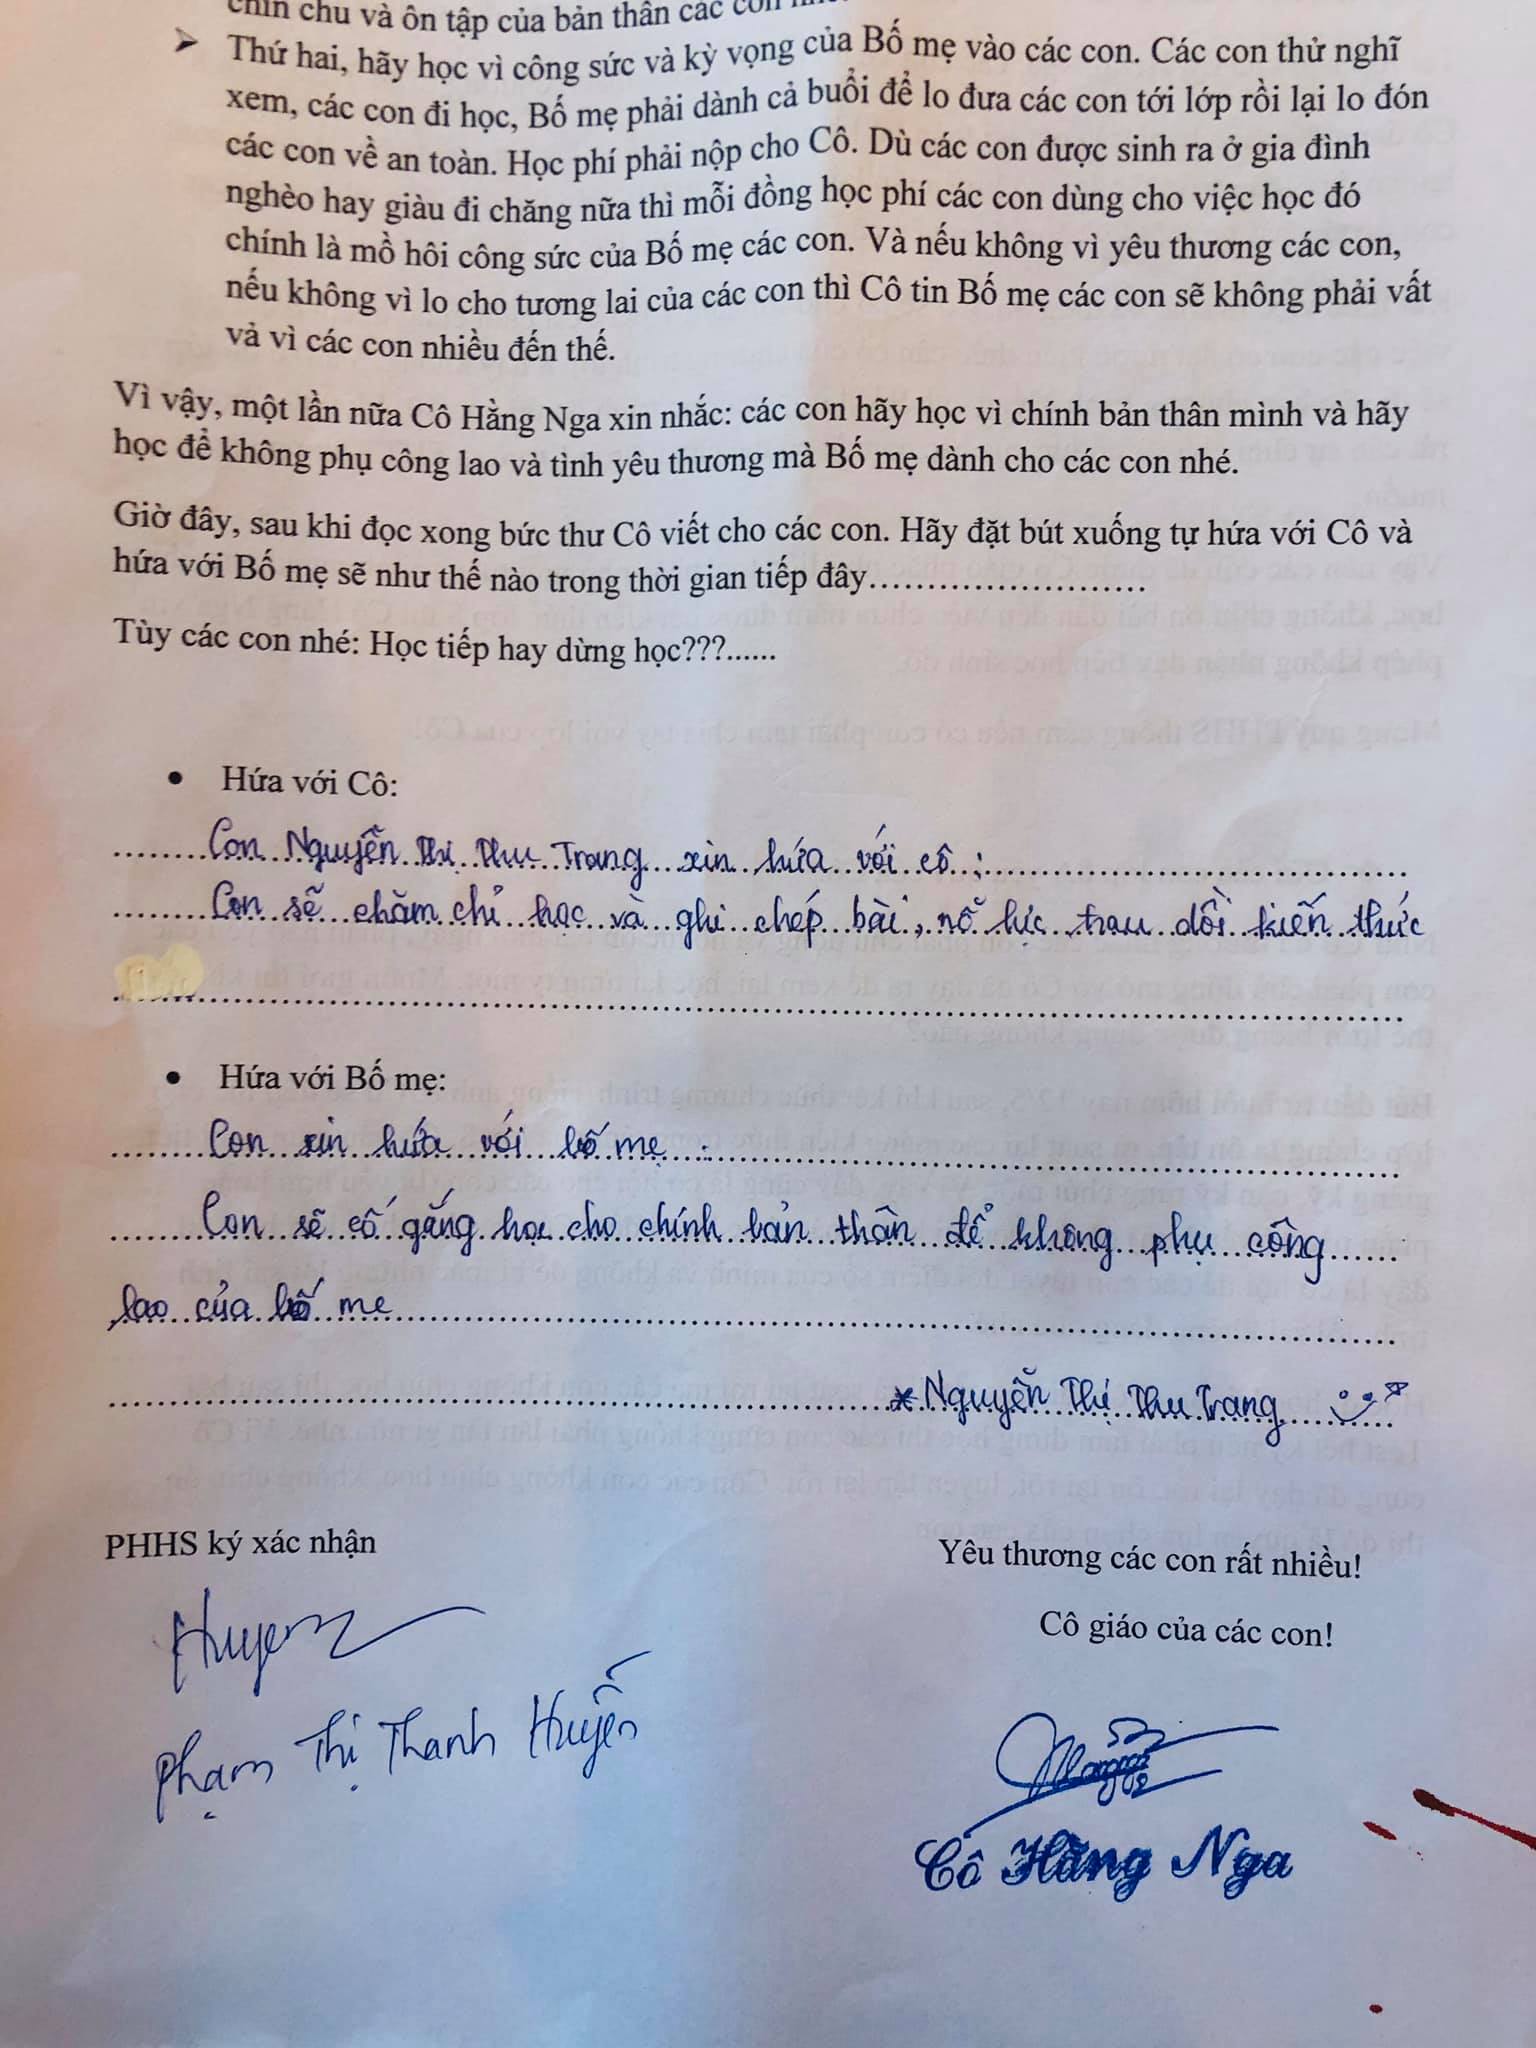 chỉn chu và ôn tập của bản thân các con
➢ Thứ hai, hãy học vì công sức và kỳ vọng của Bố mẹ vào các con. Các con thử nghĩ
xem, các con đi học, Bố mẹ phải dành cả buổi để lo đưa các con tới lớp rồi lại lo đón
các con về an toàn. Học phí phải nộp cho Cô. Dù các con được sinh ra ở gia đình
nghèo hay giàu đi chăng nữa thì mỗi đồng học phí các con dùng cho việc học đó
chính là mồ hôi công sức của Bố mẹ các con. Và nếu không vì yêu thương các con,
nếu không vì lo cho tương lai của các con thì Cô tin Bố mẹ các con sẽ không phải vất
vả vì các con nhiều đến thế.
Vì vậy, một lần nữa Cô Hằng Nga xin nhắc: các con hãy học vì chính bản thân mình và hãy
học để không phụ công lao và tình yêu thương mà Bố mẹ dành cho các con nhé.
Giờ đây, sau khi đọc xong bức thư Cô viết cho các con. Hãy đặt bút xuống tự hứa với Cô và
hứa với Bố mẹ sẽ như thế nào trong thời gian tiếp đây……………………
Tùy các con nhé: Học tiếp hay dừng học???......
• Hứa với Cô:
Con Nguyễn Thị Thu Trang xin hứa với cô :
Con sẽ chăm chỉ học và ghi chép bài, nỗ lực trau dồi kiến thức
• Hứa với Bố mẹ:
Con xin hứa với bố mẹ :
Con sẽ cố gắng học cho chính bản thân để không phụ công
lao của bố mẹ
* Nguyễn Thị Thu Trang
PHHS ký xác nhận
Yêu thương các con rất nhiều!
Cô giáo của các con!
Huyền
Phạm Thị Thanh Huyền
Cô Hằng Nga